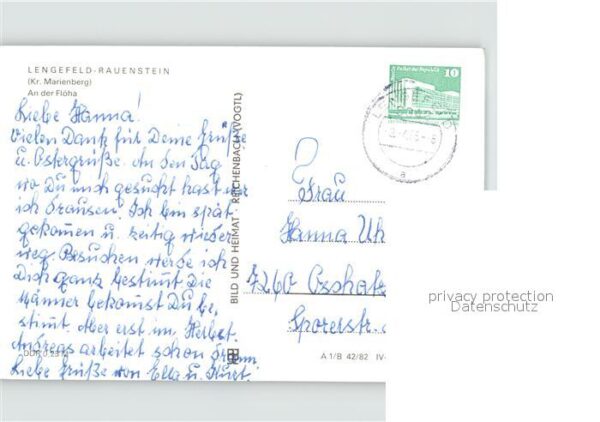 LENGEFELD-RAUENSTEIN
(Kr. Marienberg)
An der Flöha
Liebe Hanna!
Vielen Dank für Deine Grüße
u. Ostergrüße. An den Tag
wo Du mich gesucht hast war
ich draußen. Ich bin spät
gekomen u. zeitig wieder
weg. Besuchen werde ich
Dich ganz bestimt die
Männer bekomst Du be,
stimt. Aber erst im Herbst.
Andreas arbeitet schon
Liebe Grüße von Ella u. Kurt.
BILD UND HEIMAT · REICHENBACH (VOGTL)
Palast der Republik
10
DDR
a
Frau
Hanna Uh
7260 Oschatz
Sporerstr.
A 1/B 42/82 IV-
privacy protection
Datenschutz